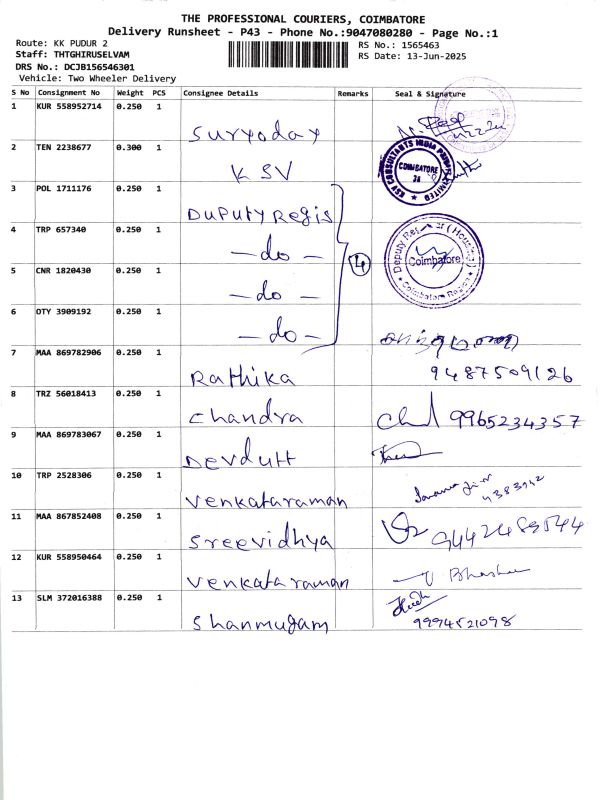 THE PROFESSIONAL COURIERS, COIMBATORE
Delivery Runsheet - P43 - Phone No.:9047080280 - Page No.:1
Route: KK PUDUR 2
Staff: THTGHIRUSELVAM
DRS No.: DCJB156546301
Vehicle: Two Wheeler Delivery
RS No.: 1565463
RS Date: 13-Jun-2025
S No Consignment No Weight PCS Consignee Details Remarks Seal & Signature
1 KUR 558952714 0.250 1 Suryoday
2 TEN 2238677 0.300 1 KSV KSV CONSULTANTS INDIA PRIVATE LIMITED COIMBATORE
3 POL 1711176 0.250 1 Duputy Regis
4 TRP 657340 0.250 1 - do - 4 Deputy Registrar (Housing) Coimbatore Coimbatore Region
5 CNR 1820430 0.250 1 - do -
6 OTY 3909192 0.250 1 - do -
7 MAA 869782906 0.250 1 Rathika 9487509126
8 TRZ 56018413 0.250 1 Chandra 9965234357
9 MAA 869783067 0.250 1 Devdutt
10 TRP 2528306 0.250 1 Venkataraman
11 MAA 867852408 0.250 1 Sreevidhya
12 KUR 558950464 0.250 1 Venkataraman
13 SLM 372016388 0.250 1 Shanmugam 9994521098